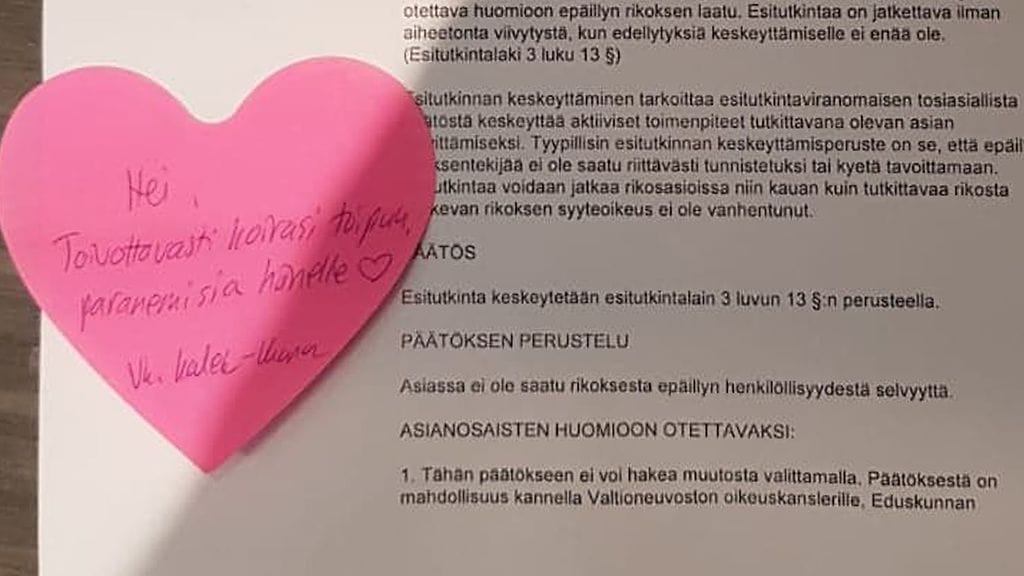 Hei,
Toivottavasti koirasi toipuu,
paranemisia hänelle ♡
Vk.
otettava huomioon epäillyn rikoksen laatu. Esitutkintaa on jatkettava ilman
aiheetonta viivytystä, kun edellytyksiä keskeyttämiselle ei enää ole.
(Esitutkintalaki 3 luku 13 §)
situtkinnan keskeyttäminen tarkoittaa esitutkintaviranomaisen tosiasiallista
töstä keskeyttää aktiiviset toimenpiteet tutkittavana olevan asian
ittämiseksi. Tyypillisin esitutkinnan keskeyttämisperuste on se, että epäil
ksentekijää ei ole saatu riittävästi tunnistetuksi tai kyetä tavoittamaan.
utkintaa voidaan jatkaa rikosasioissa niin kauan kuin tutkittavaa rikosta
kevan rikoksen syyteoikeus ei ole vanhentunut.
ÄÄTÖS
Esitutkinta keskeytetään esitutkintalain 3 luvun 13 §:n perusteella.
PÄÄTÖKSEN PERUSTELU
Asiassa ei ole saatu rikoksesta epäillyn henkilöllisyydestä selvyyttä.
ASIANOSAISTEN HUOMIOON OTETTAVAKSI:
1. Tähän päätökseen ei voi hakea muutosta valittamalla. Päätöksestä on
mahdollisuus kannella Valtioneuvoston oikeuskanslerille, Eduskunnan